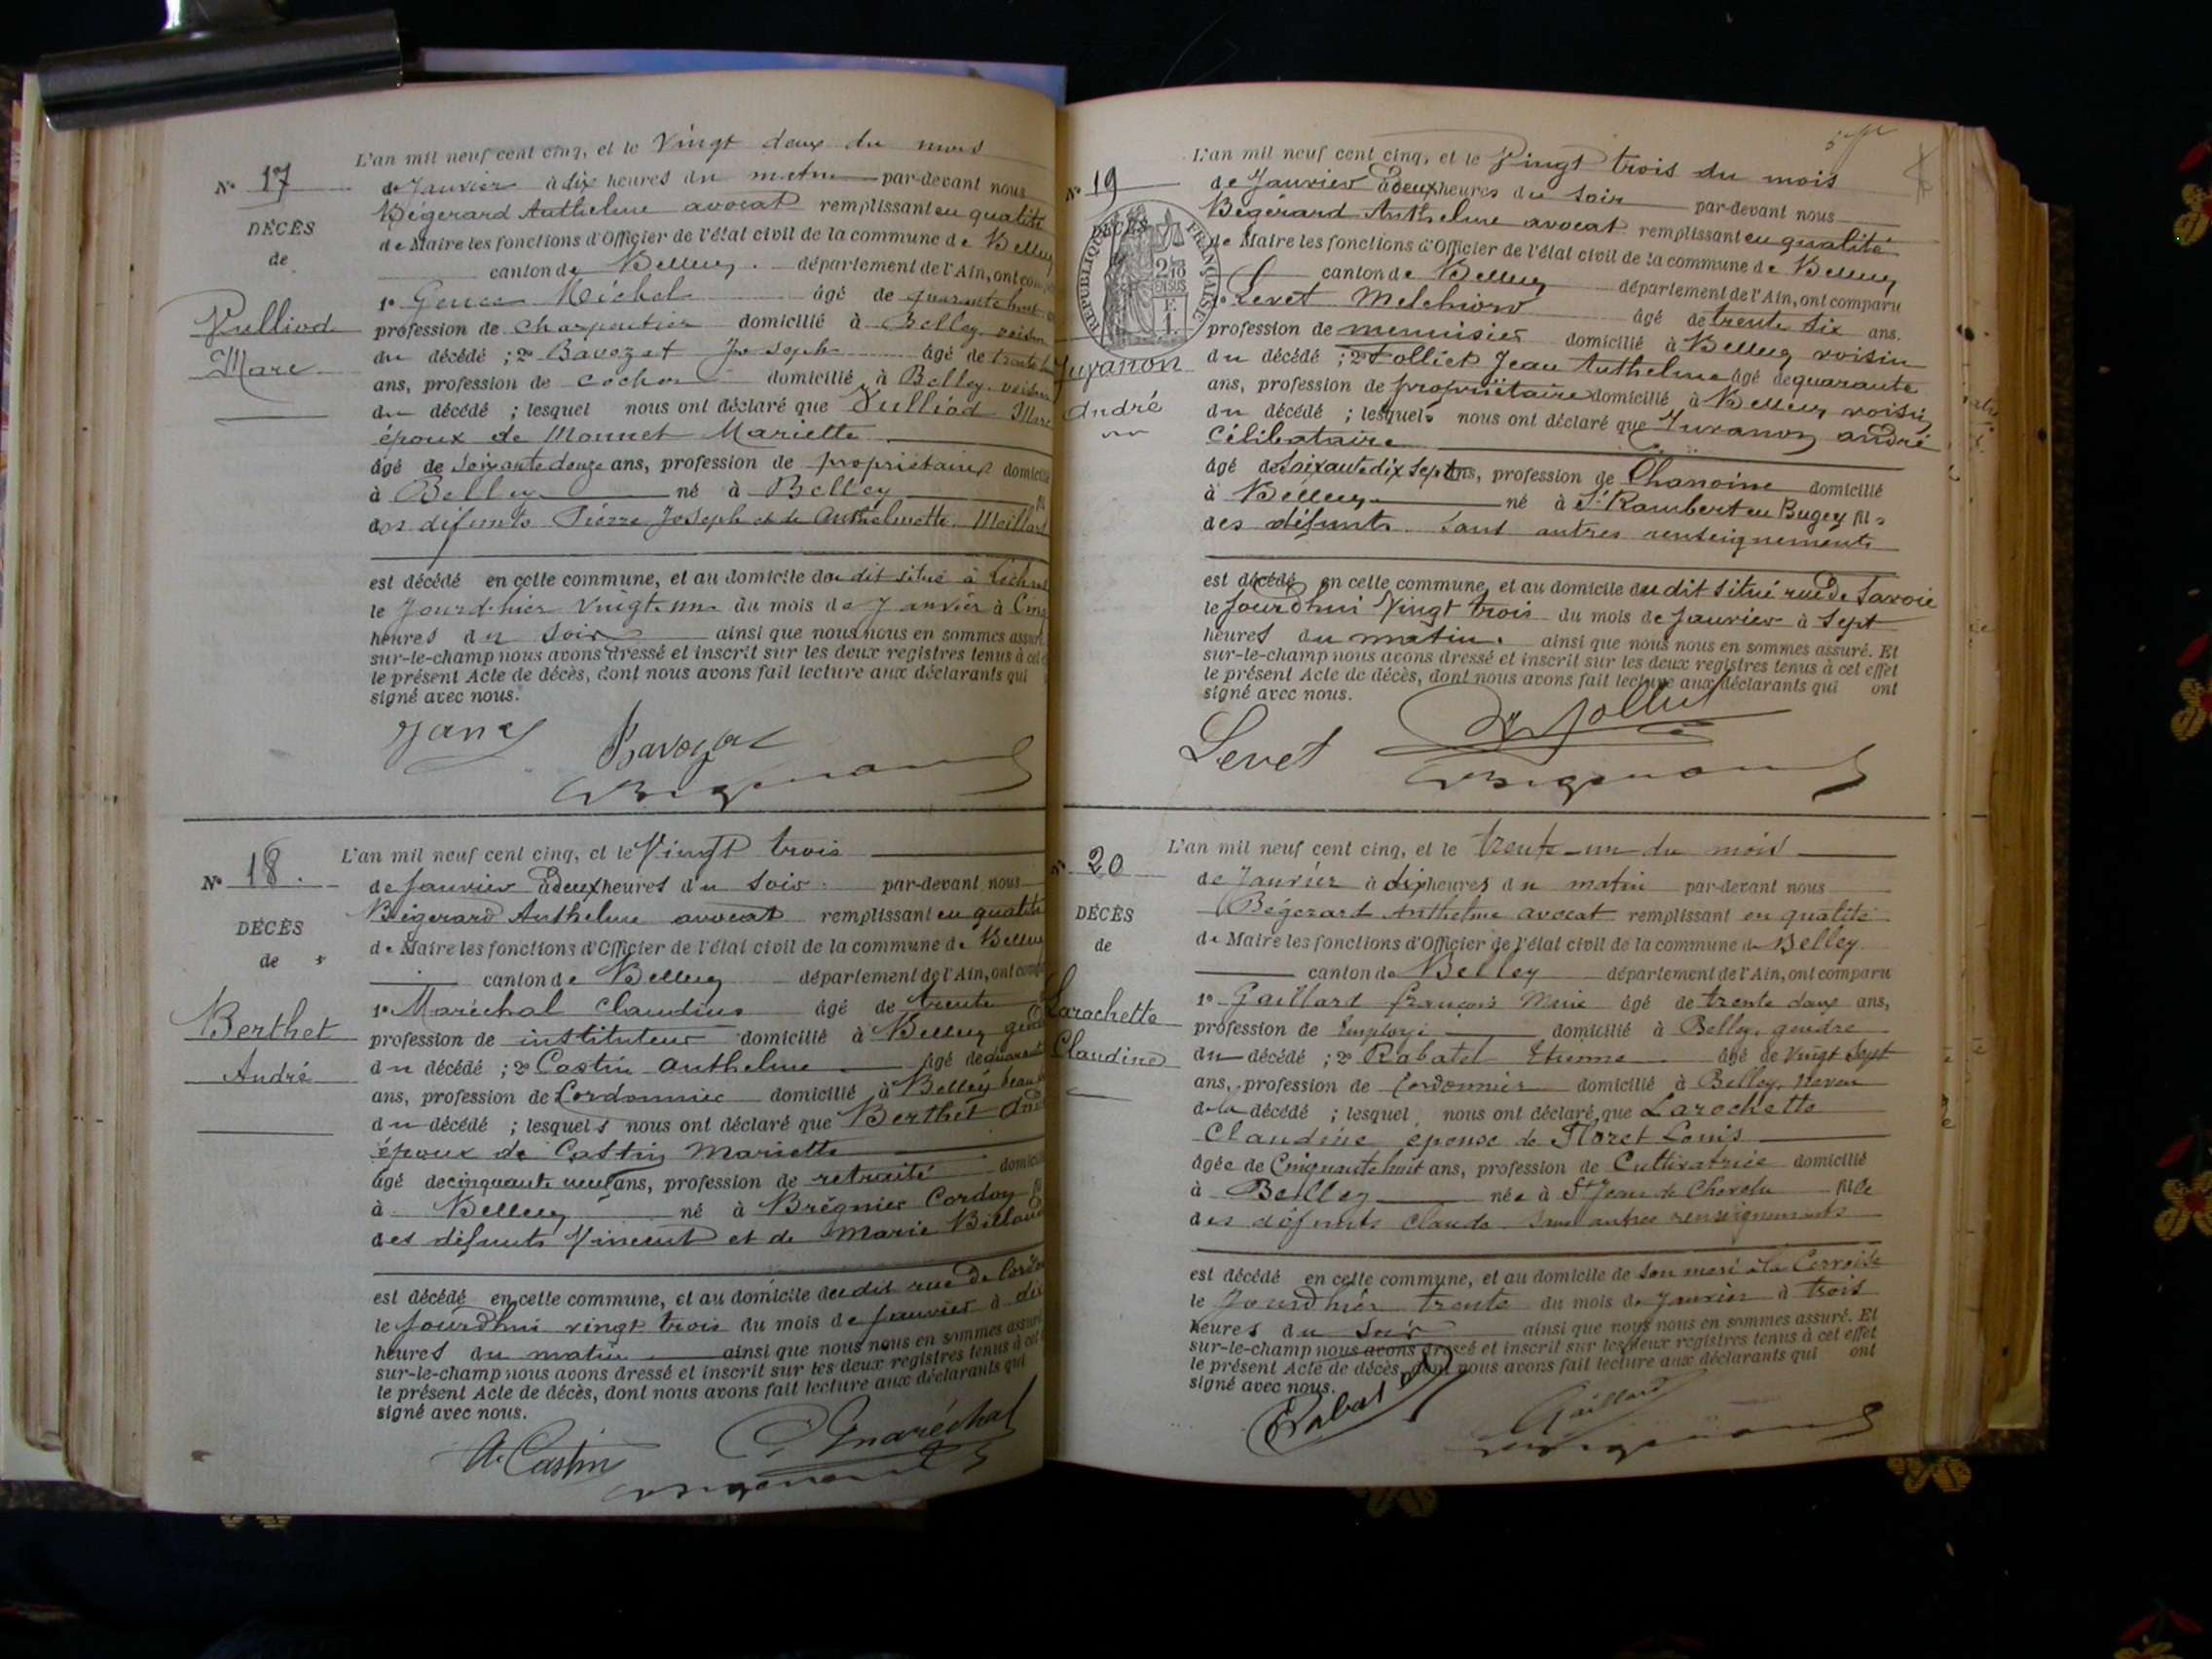 L'an mil neuf cent cinq, et le Vingt deux du mois
N° 17
de Janvier à dix heures du matin par-devant nous
Bégerard Anthelme avocat remplissant en qualité
DÉCÈS
de Maire les fonctions d'Officier de l'état civil de la commune de Belley
de
canton de Belley département de l'Ain, ont
1° Michel âgé de quarante huit
Vulliod
profession de charpentier domicilié à Belley voisin
Marc
du décédé ; 2° Bavozat Joseph âgé de trente
ans, profession de cocher domicilié à Belley voisin
du décédé ; lesquel nous ont déclaré que Vulliod Marc
époux de Monnet Mariette
âgé de Soixante douze ans, profession de propriétaire domicilié
à Belley né à Belley
des défunts Pierre Joseph et de Anthelmette
est décédé en cette commune, et au domicile du dit situé à
le Jourd'hier Vingt un du mois de Janvier à Cinq
heures du Soir ainsi que nous nous en sommes assuré
sur-le-champ nous avons dressé et inscrit sur les deux registres tenus à cet
le présent Acte de décès, dont nous avons fait lecture aux déclarants qui
signé avec nous.
Bavozat
L'an mil neuf cent cinq, et le Vingt trois
N° 18.
de Janvier à deux heures du Soir par-devant nous
Bégerard Anthelme avocat remplissant en qualité
DÉCÈS
de Maire les fonctions d'Officier de l'état civil de la commune de Belley
de
canton de Belley département de l'Ain, ont
1° Maréchal Claudius âgé de trente
Berthet
profession de instituteur domicilié à Belley gendre
André
du décédé ; 2° Castin Anthelme âgé de quarante
ans, profession de Cordonnier domicilié à Belley beau
du décédé ; lesquels nous ont déclaré que Berthet André
époux de Castin Mariette
âgé de cinquante neuf ans, profession de retraité domicilié
à Belley né à Brégnier Cordon
des défunts Vincent et de Marie
est décédé en cette commune, et au domicile du dit rue de
le Jourd'hui vingt trois du mois de Janvier à dix
heures du matin ainsi que nous nous en sommes assuré
sur-le-champ nous avons dressé et inscrit sur les deux registres tenus à cet
le présent Acte de décès, dont nous avons fait lecture aux déclarants qui
signé avec nous.
A. Castin C. Maréchal
L'an mil neuf cent cinq, et le Vingt trois du mois
N° 19
de Janvier à deux heures du Soir par-devant nous
Bégerard Anthelme avocat remplissant en qualité
DÉCÈS
RÉPUBLIQUE FRANÇAISE
de Maire les fonctions d'Officier de l'état civil de la commune de Belley
canton de Belley département de l'Ain, ont comparu
1° Levet Melchior âgé de trente six ans.
profession de menuisier domicilié à Belley voisin
Juvanon
du décédé ; 2° Folliet Jean Anthelme âgé de quarante
André
ans, profession de propriétaire domicilié à Belley voisin
du décédé ; lesquels nous ont déclaré que Juvanon André
Célibataire
âgé de Soixante dix Sept ans, profession de Chanoine domicilié
à Belley né à St Rambert en Bugey fils
des défunts Sans autres renseignements
est décédé en cette commune, et au domicile du dit Situé rue de Savoie
le Jourd'hui Vingt trois du mois de Janvier à Sept
heures du matin. ainsi que nous nous en sommes assuré. Et
sur-le-champ nous avons dressé et inscrit sur les deux registres tenus à cet effet
le présent Acte de décès, dont nous avons fait lecture aux déclarants qui ont
signé avec nous.
Levet
L'an mil neuf cent cinq, et le trente-un du mois
N° 20
de Janvier à dix heures du matin par-devant nous
Bégerard Anthelme avocat remplissant en qualité
DÉCÈS
de Maire les fonctions d'Officier de l'état civil de la commune de Belley
de
canton de Belley département de l'Ain, ont comparu
Larochette
1° Gaillard François Marie âgé de trente deux ans,
profession de Employé domicilié à Belley, gendre
Claudine
du décédé ; 2° Rabatel Etienne âgé de Vingt Sept
ans, profession de Cordonnier domicilié à Belley, Neveu
de la décédé ; lesquel nous ont déclaré que Larochette
Claudine épouse de Floret Louis
âgée de Cinquante huit ans, profession de Cultivatrice domicilié
à Belley née à St Jean de Chevelu fille
des défunts Claude Sans autres renseignements
est décédé en cette commune, et au domicile de Son mari à la
le Jourd'hier trente du mois de Janvier à trois
heures du Soir ainsi que nous nous en sommes assuré. Et
sur-le-champ nous avons dressé et inscrit sur les deux registres tenus à cet effet
le présent Acte de décès, dont nous avons fait lecture aux déclarants qui ont
signé avec nous.
Rabatel Gaillard